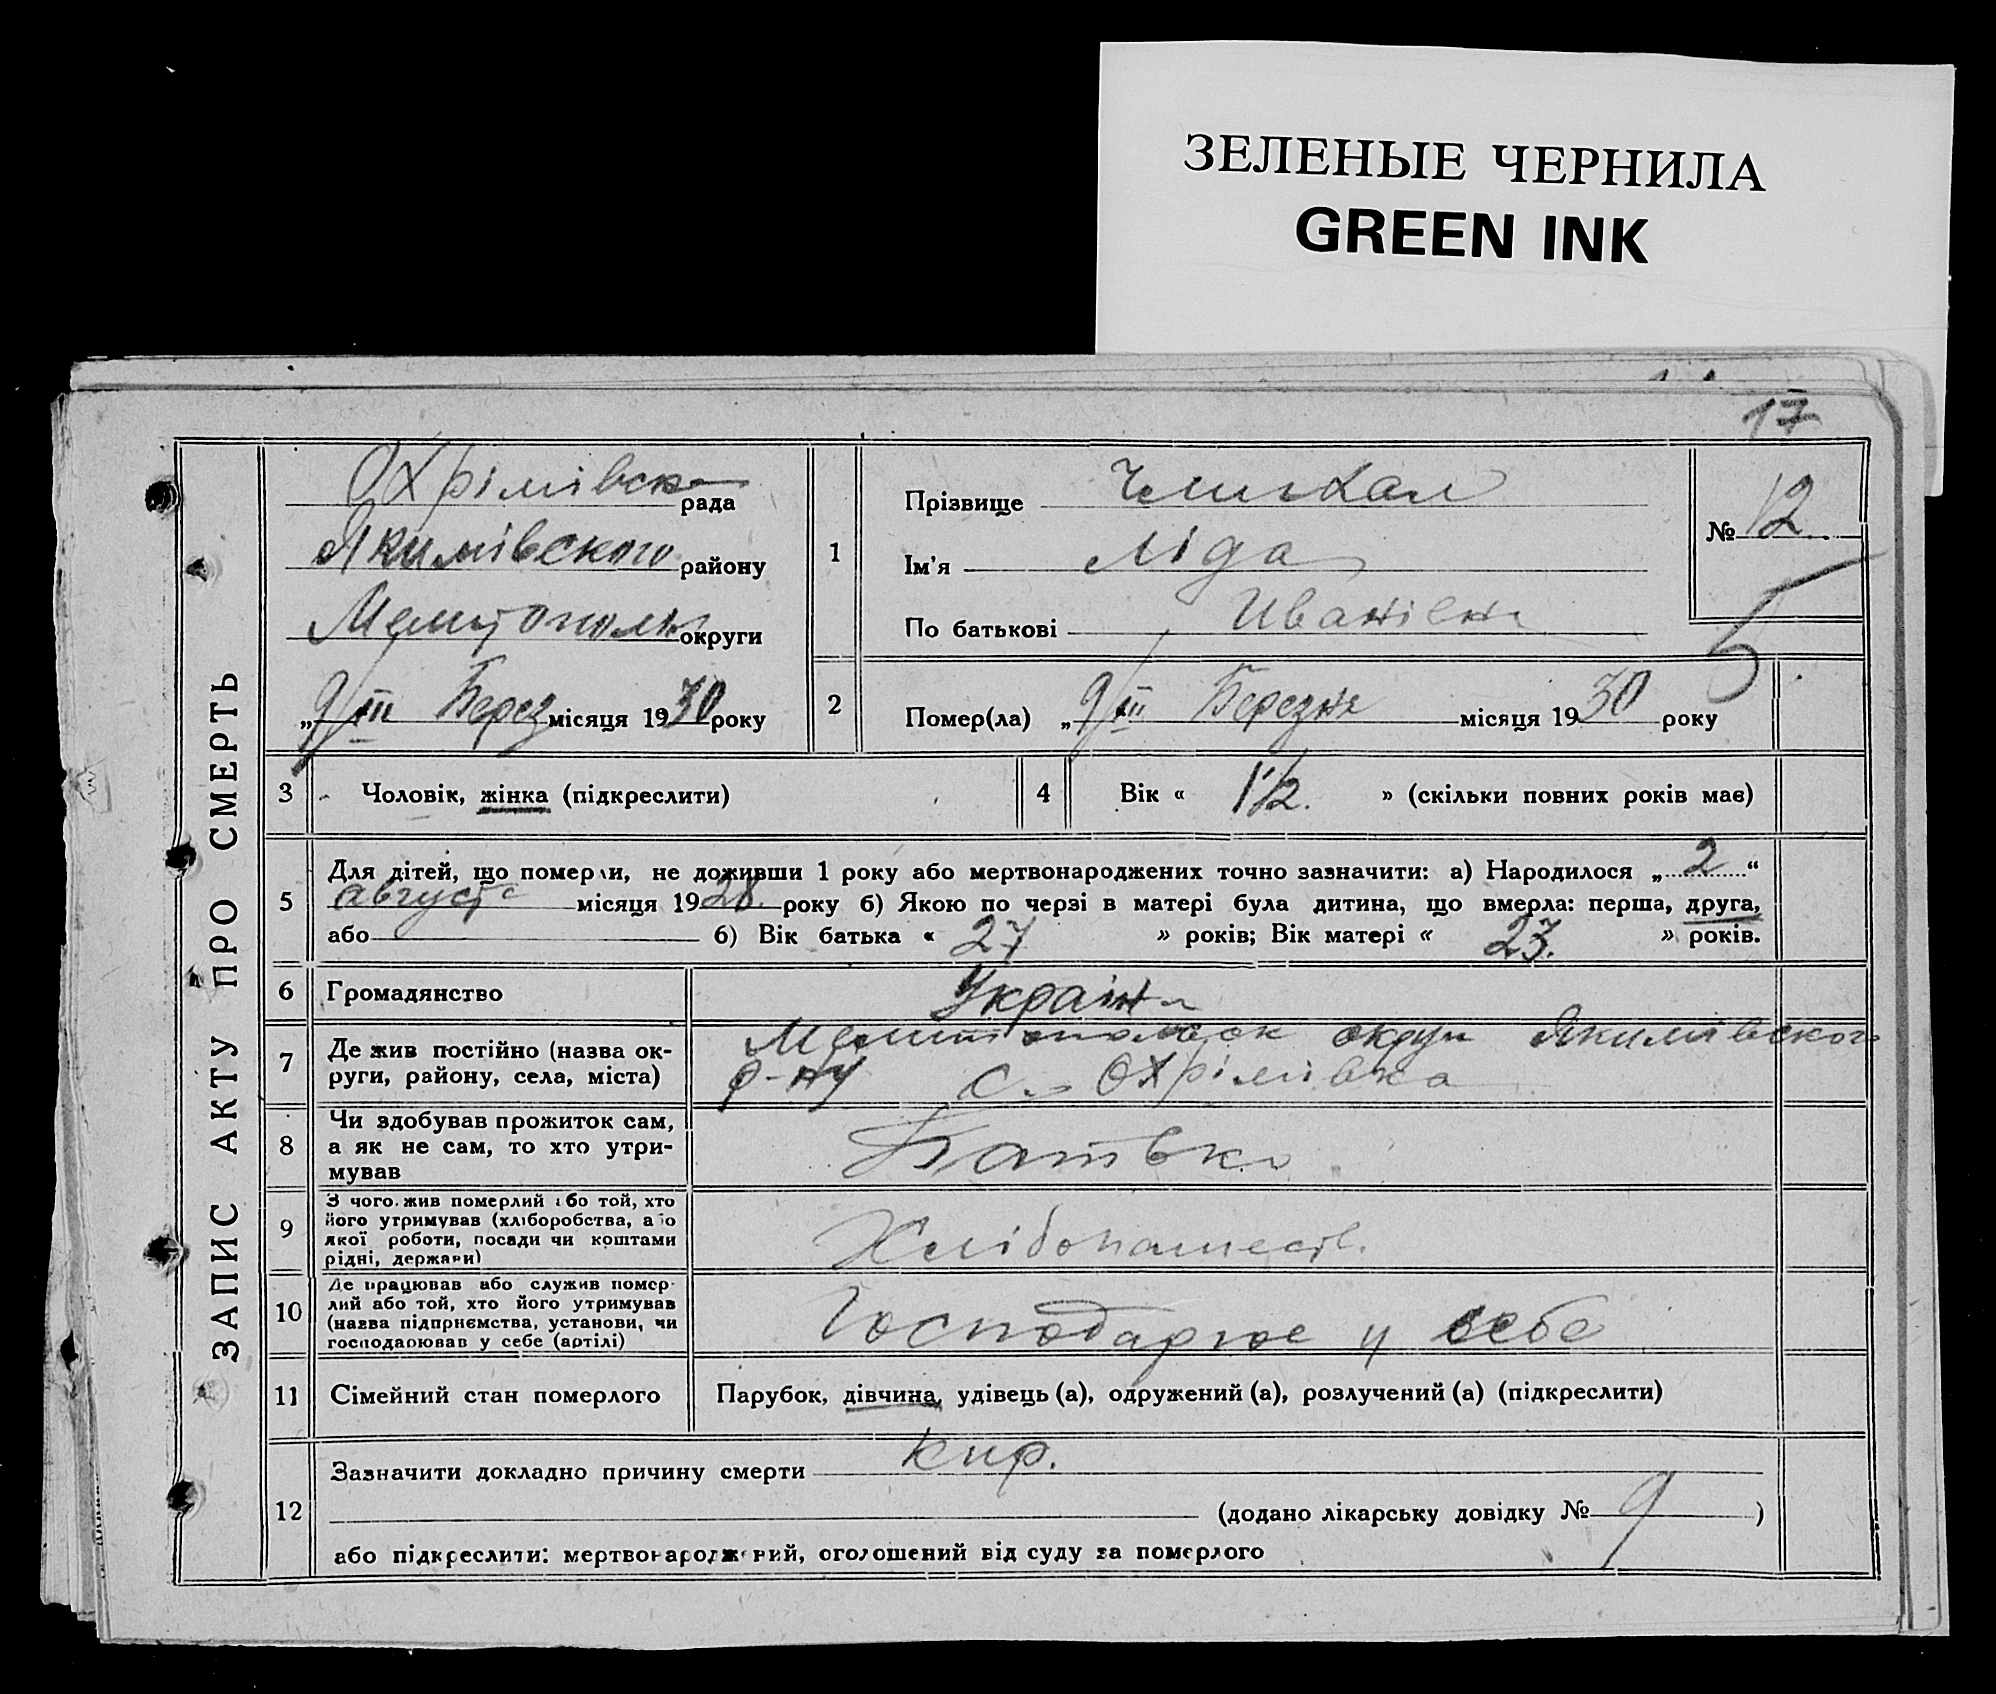 ЗЕЛЕНЫЕ ЧЕРНИЛА
GREEN INK
17
ЗАПИС АКТУ ПРО СМЕРТЬ
Охрімівська рада
Якимівського району
округи
„9/III Берез місяця 1930 року
1
Прізвище
Ім'я Ліда
По батькові Иванівна
№ 12
2
Помер(ла) „9/III Березня місяця 1930 року
3 Чоловік, жінка (підкреслити)
4 Вік « 1 1/2. » (скільки повних років має)
5
Для дітей, що померли, не доживши 1 року або мертвонароджених точно зазначити: а) Народилося „ 2 “
августа місяця 1928. року б) Якою по черзі в матері була дитина, що вмерла: перша, друга,
або б) Вік батька « 27 » років; Вік матері « 23. » років.
6 Громадянство
7
Де жив постійно (назва ок-
руги, району, села, міста)
округи Якимівського
р-ну с. Охрімівка
8
Чи здобував прожиток сам,
а як не сам, то хто утри-
мував
Батько
9
З чого жив померлий або той, хто
його утримував (хліборобства, або
якої роботи, посади чи коштами
рідні, держави)
10
Де працював або служив помер-
лий або той, хто його утримував
(назва підприємства, установи, чи
господарював у себе (артілі)
Господарює у себе
11 Сімейний стан померлого
Парубок, дівчина, удівець (а), одружений (а), розлучений (а) (підкреслити)
12
Зазначити докладно причину смерти кир.
(додано лікарську довідку № 9 )
або підкреслити: мертвонароджений, оголошений від суду за померлого